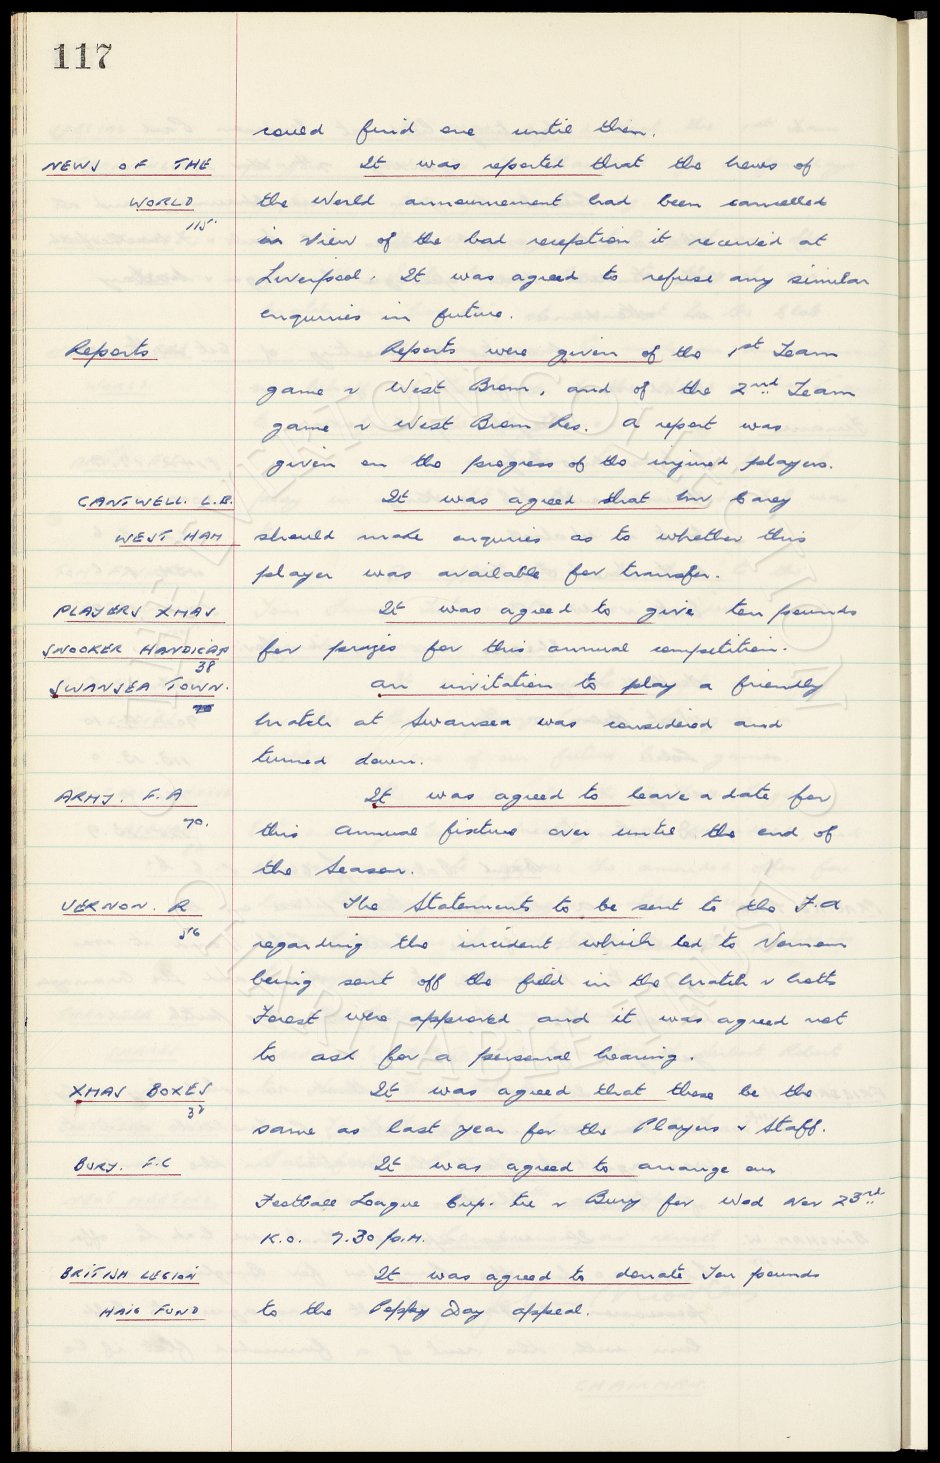 117
could find one until then.
NEWS OF THE It was reported that the News of
WORLD the World announcement had been cancelled
115 in view of the bad reception it received at
Liverpool. It was agreed to refuse any similar
enquiries in future.
Reports Reports were given of the 1st Team
game v West Brom, and of the 2nd Team
game v West Brom Res. A report was
given on the progress of the injured players.
CANTWELL. L.B. It was agreed that Mr Carey
WEST HAM should make enquiries as to whether this
player was available for transfer.
PLAYERS XMAS It was agreed to give ten pounds
SNOOKER HANDICAP for prizes for this annual competition.
38
SWANSEA TOWN. An invitation to play a friendly
match at Swansea was considered and
turned down.
ARMY. F.A It was agreed to leave a date for
70. this annual fixture over until the end of
the Season.
VERNON. R The Statements to be sent to the F.A
516 regarding the incident which led to Vernon
being sent off the field in the match v Notts
Forest were approved and it was agreed not
to ask for a personal hearing.
XMAS BOXES It was agreed that these be the
38 same as last year for the Players & Staff.
BURY. F.C It was agreed to arrange our
Football League Cup. tie v Bury for Wed Nov 23rd
K.O. 7.30 p.m.
BRITISH LEGION It was agreed to donate Ten pounds
HAIG FUND to the Poppy Day appeal.